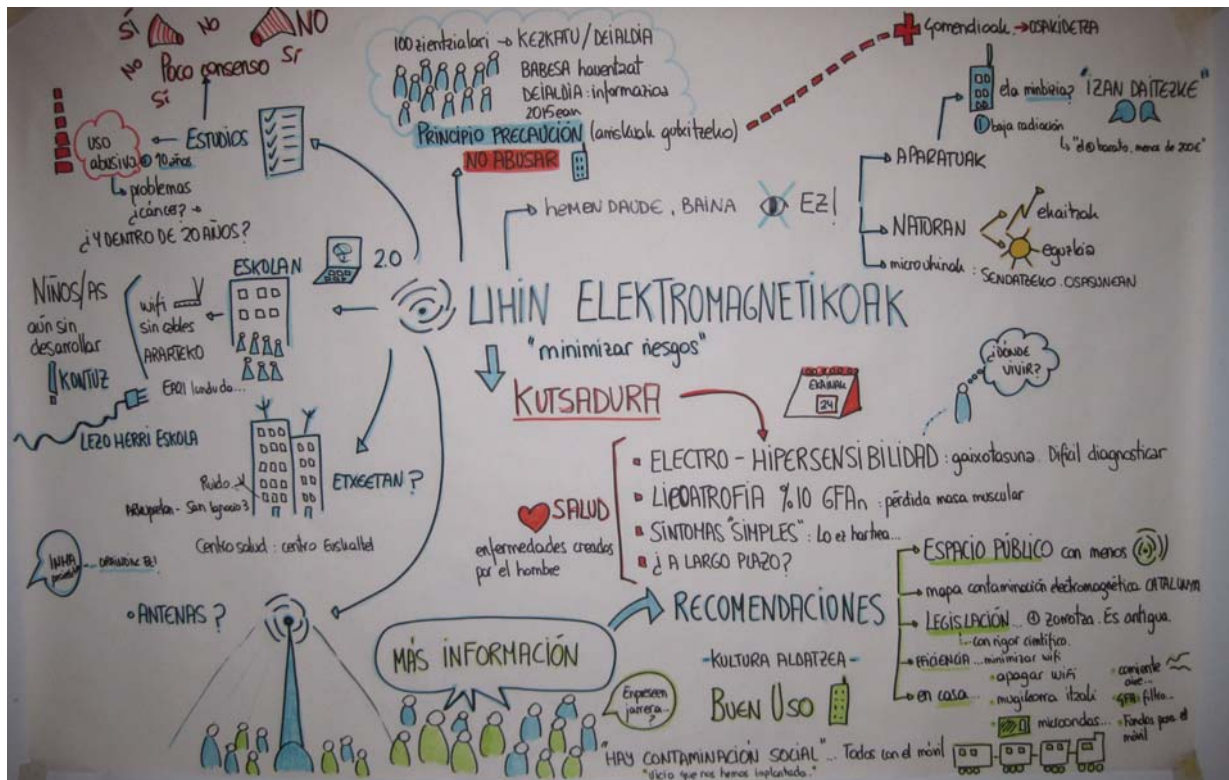 SÍ
NO
NO
NO
Poco consenso
SÍ
SÍ
ESTUDIOS
USO
abusivo
10 años
problemas
¿cáncer?
¿Y DENTRO DE 20 AÑOS?
100 zientzialari → KEZKATU / DEIALDIA
BABESA hauentzat
DEIALDIA: informazioa
2015ean
PRINCIPIO PRECAUCIÓN (arriskuak gutxitzeko)
NO ABUSAR
hEMEN DAUDE, BAINA
EZ!
Gomendioak → OSAKIDETZA
eta minbizia? "IZAN DAITEZKE"
baja radiación
barato, menos de 200€"
APARATUAK
NATURAN
ekaitzak
eguzkia
microuhinak: SENDATZEKO. OSASUNEAN
ESKOLAN
2.0
NIÑOS/AS
aún sin
desarrollar
KONTUZ
wifi
sin cables
ARARTEKO
LEZO HERRI ESKOLA
UHIN ELEKTROMAGNETIKOAK
"minimizar riesgos"
KUTSADURA
EKAINAK
24
¿DÓNDE
VIVIR?
ETXEETAN?
Ruido
San Ignacio 3
Centro salud: centro Euskaltel
SALUD
enfermedades creadas
por el hombre
ELECTRO-HIPERSENSIBILIDAD: gaixotasuna. Dificil diagnosticar
LIPOATROFIA %10 GFAn: pérdida masa muscular
SÍNTOMAS "SIMPLES": Lo ez hartzea...
¿A LARGO PLAZO?
ANTENAS?
MÁS INFORMACIÓN
RECOMENDACIONES
ESPACIO PÚBLICO con menos
mapa contaminación electromagnética. CATALUNYA
LEGISLACIÓN... zorrotza. Es antigua.
con rigor científico.
EFICIENCIA... minimizar wifi
en casa...
apagar wifi
mugikorra itzali
microondas...
corriente
GFA: filtro...
Fundas para el
móvil
-KULTURA ALDATZEA-
BUEN USO
Enpresen
jarrera...
?
"HAY CONTAMINACIÓN SOCIAL"... Todos con el móvil
"Vicio que nos hemos implantado."